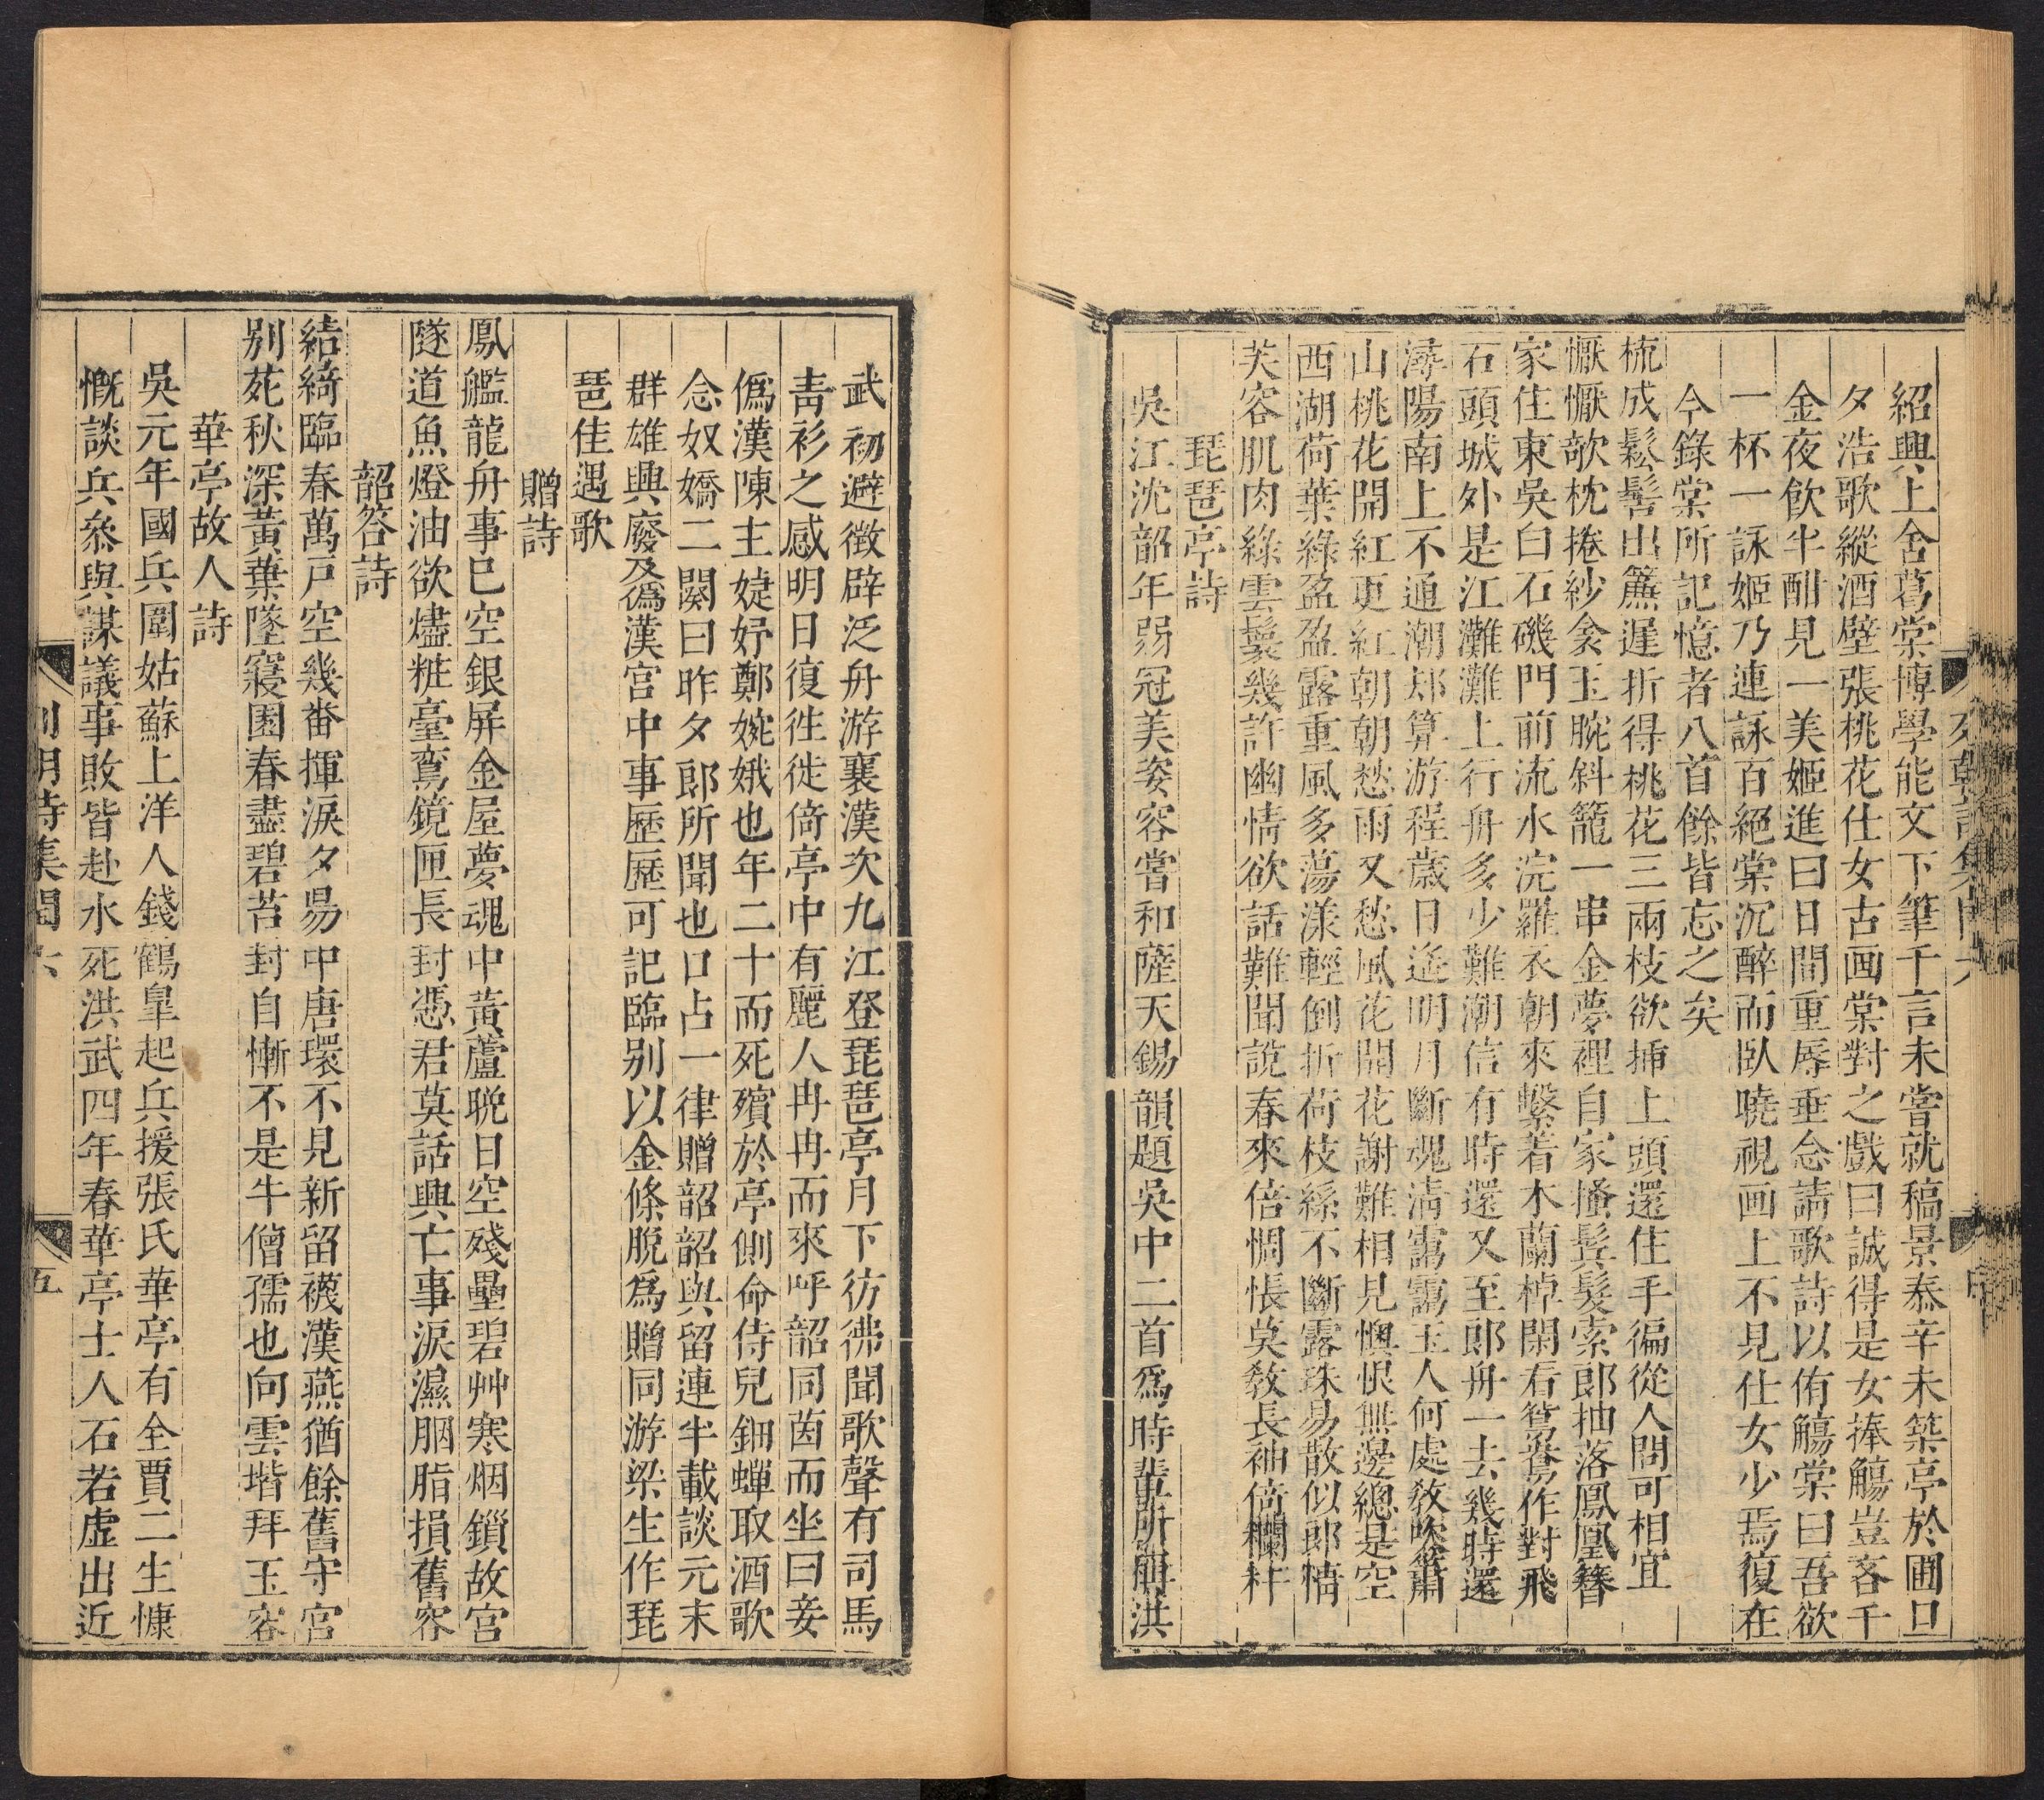 紹興上舍葛棠博學能文下筆千言未嘗就稿景泰辛未築亭於圃日
夕浩歌縱酒壁張桃花仕女古画棠對之戲曰誠得是女捧觴豈吝千
金夜飲半酣見一美姬進曰日間重辱垂念請歌詩以侑觴棠曰吾欲
一杯一詠姬乃連詠百絕棠沉醉而臥曉視画上不見仕女少焉復在
今錄棠所記憶者八首餘皆忘之矣
梳成鬆髻出簾遲折得桃花三兩枝欲揷上頭還住手徧從人問可相宜
懨懨欹枕捲紗衾玉腕斜籠一串金夢裡自家搔鬂髮索郎抽落鳳凰簪
家住東吳白石磯門前流水浣羅衣朝來繫着木蘭棹閑看鴛鴦作對飛
石頭城外是江灘灘上行舟多少難潮信有時還又至郎舟一去幾時還
潯陽南上不通潮却算游程歲日遙明月斷魂淸靄靄玉人何處敎吹簫
山桃花開紅更紅朝朝愁雨又愁風花開花謝難相見懊恨無邊總是空
西湖荷葉綠盈盈露重風多蕩漾輕倒折荷枝絲不斷露珠易散似郎情
芙容肌肉綠雲鬟幾許幽情欲話難聞說春來倍惆悵莫敎長袖倚欄杆
琵琶亭詩
吳江沈韶年弱冠美姿容嘗和薩天錫韻題吳中二首爲時輩所稱洪
武初避徵辟泛舟游襄漢次九江登琵琶亭月下彷彿聞歌聲有司馬
靑衫之感明日復徃徙倚亭中有麗人冉冉而來呼韶同茵而坐曰妾
僞漢陳主婕妤鄭婉娥也年二十而死殯於亭側命侍兒鈿蟬取酒歌
念奴嬌二闋曰昨夕郎所聞也口占一律贈韶韶與留連半載談元末
群雄興廢及僞漢宮中事歷歷可記臨别以金條脫爲贈同游梁生作琵
琶佳遇歌
贈詩
鳳艦龍舟事已空銀屏金屋夢魂中黃蘆晩日空殘壘碧艸寒烟鎖故宮
隧道魚燈油欲燼粧臺鸞鏡匣長封憑君莫話興亡事淚濕胭脂損舊容
韶答詩
結綺臨春萬戸空幾畨揮淚夕昜中唐環不見新留襪漢燕猶餘舊守宮
别苑秋深黃葉墜寢園春盡碧苔封自慚不是牛僧孺也向雲堦拜玉容
華亭故人詩
吳元年國兵圍姑蘇上洋人錢鶴臯起兵援張氏華亭有全賈二生慷
慨談兵叅與謀議事敗皆赴水死洪武四年春華亭士人石若虛出近
列朝詩集閏六
五